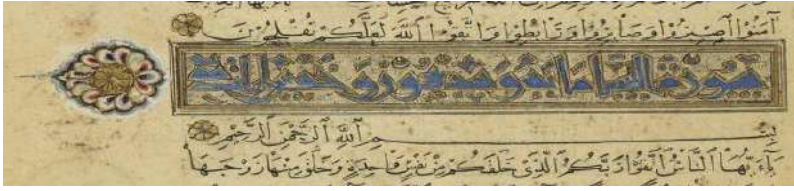 آمَنُوا اصْبِرُوا وَصَابِرُوا وَرَابِطُوا وَاتَّقُوا اللَّهَ لَعَلَّكُمْ تُفْلِحُونَ
سورة النساء مائة وسبعون وخمس آيات
بِسْمِ اللَّهِ الرَّحْمَٰنِ الرَّحِيمِ
يَا أَيُّهَا النَّاسُ اتَّقُوا رَبَّكُمُ الَّذِي خَلَقَكُمْ مِنْ نَفْسٍ وَاحِدَةٍ وَخَلَقَ مِنْهَا زَوْجَهَا